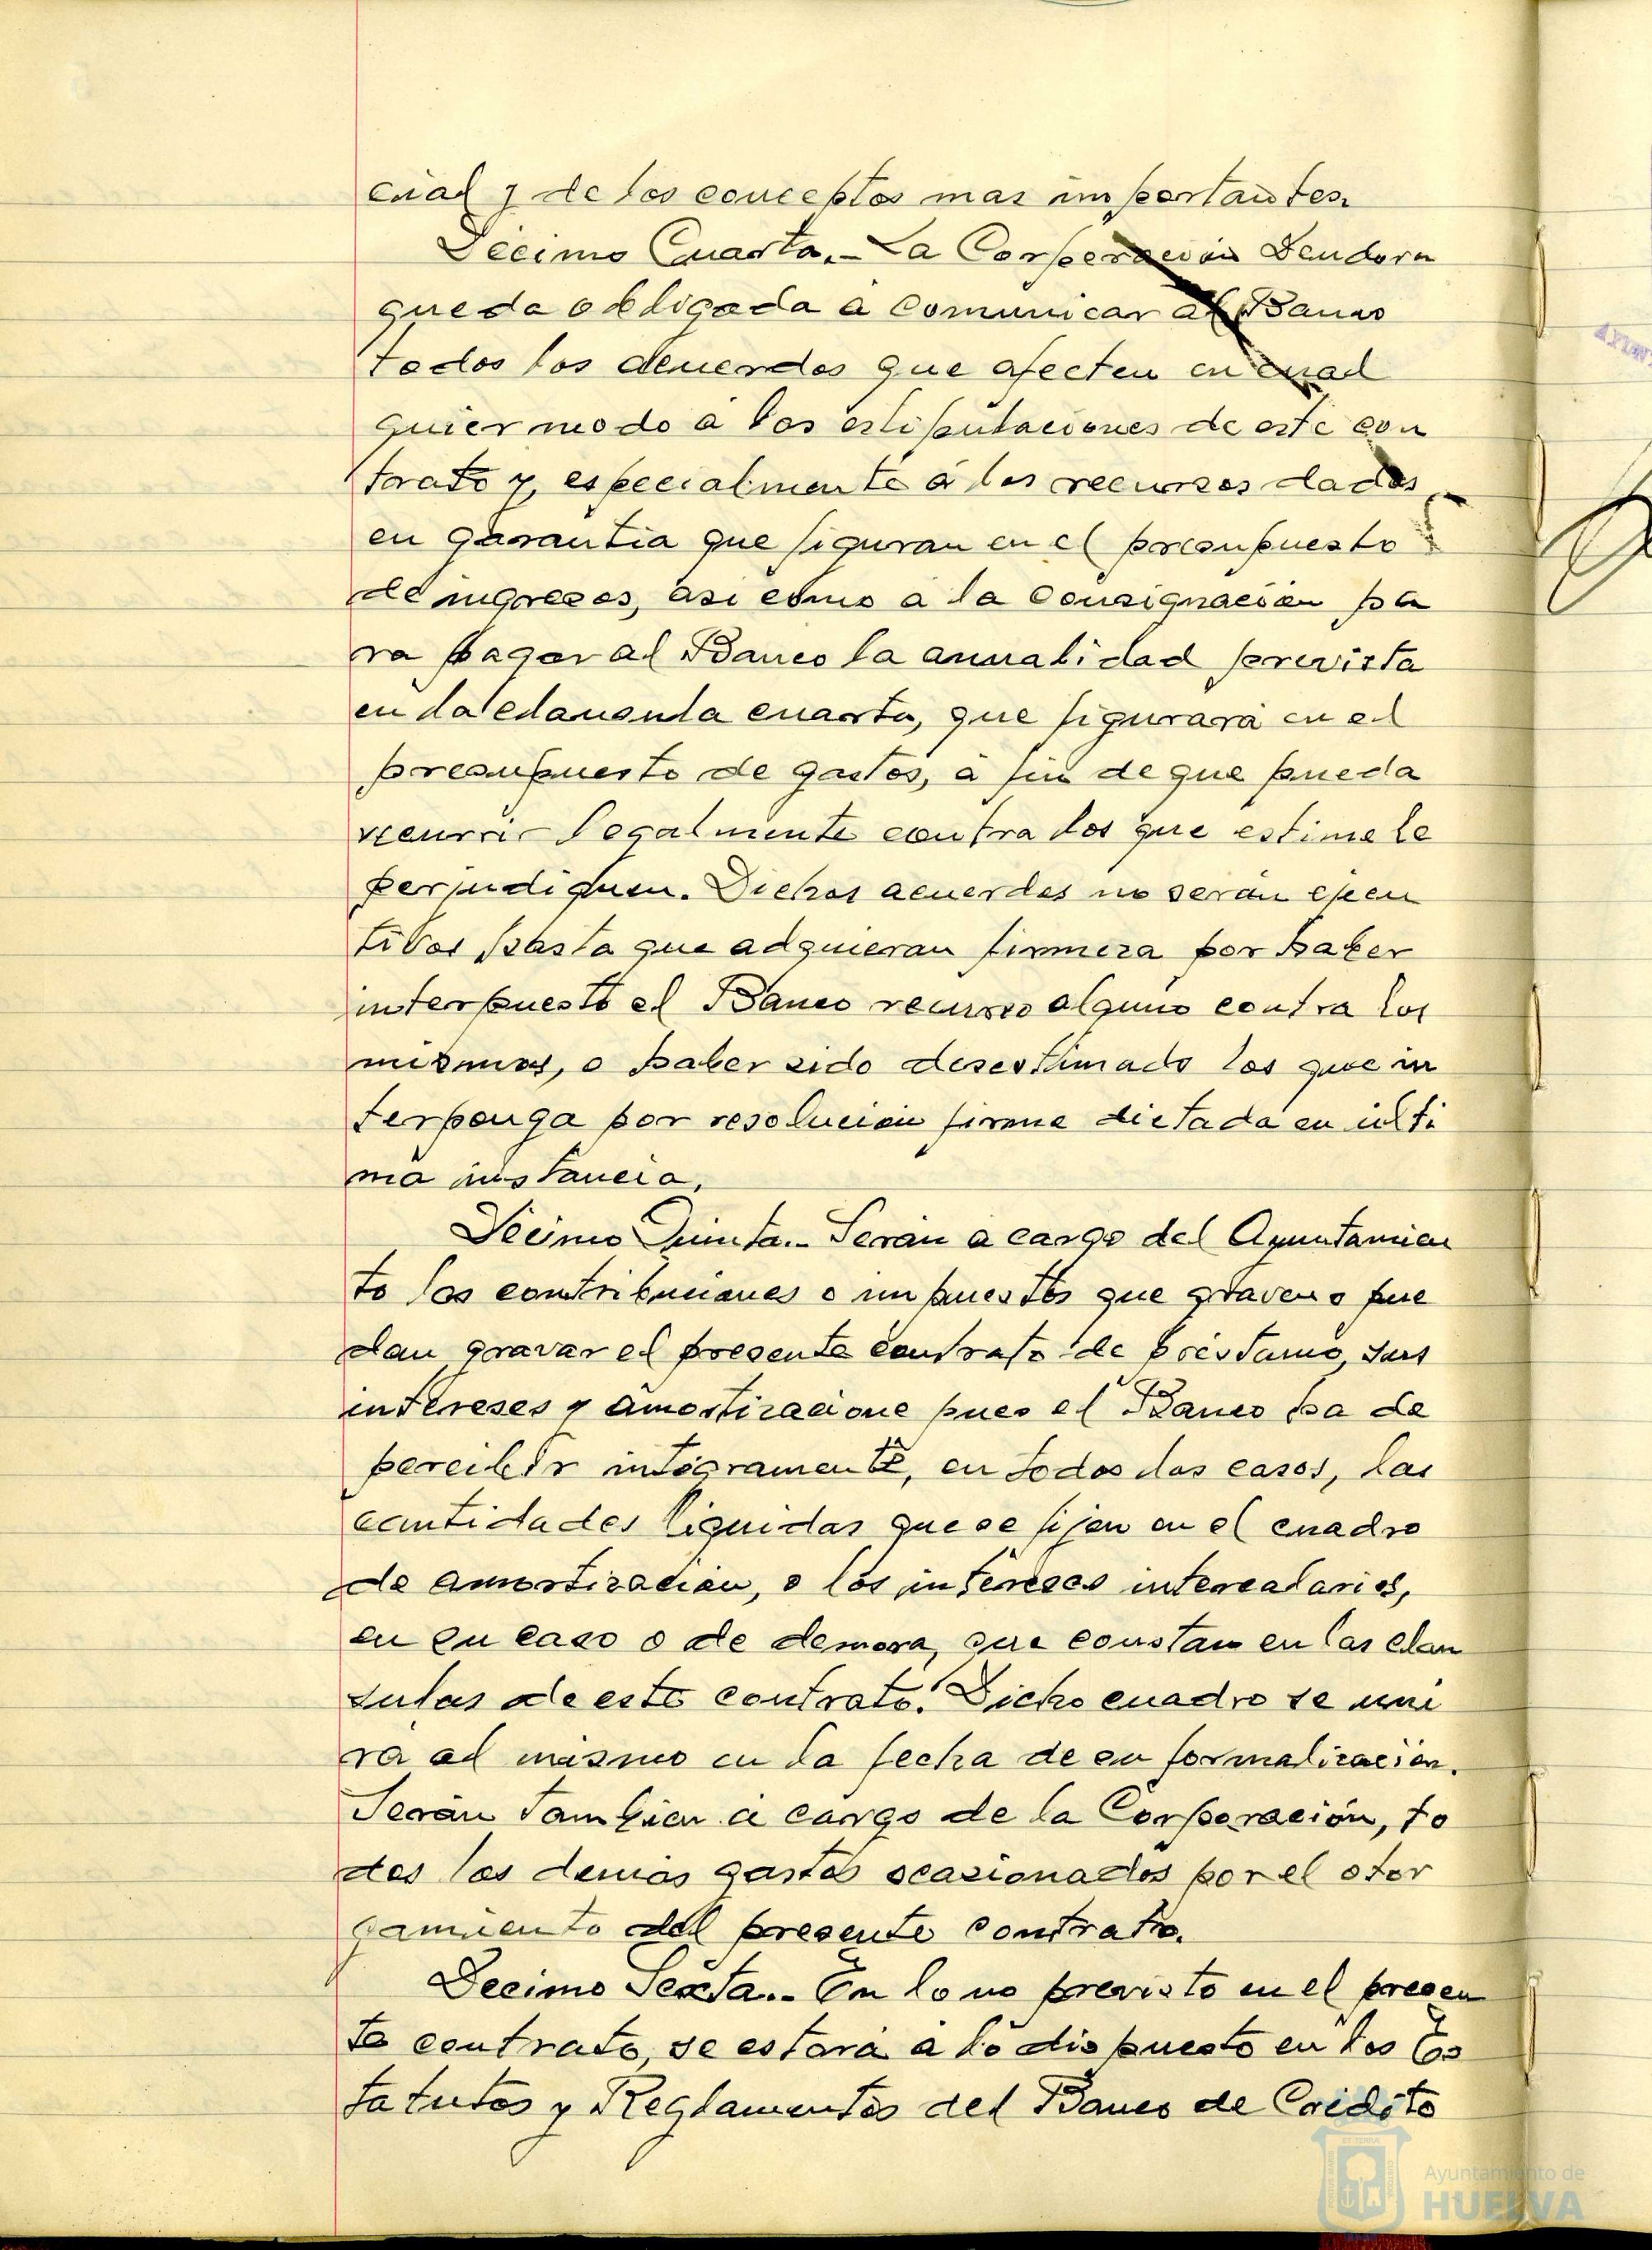 cial y de los conceptos mas importantes.
Décimo Cuarta.- La Corporación Deudora
queda obligada a comunicar al Banco
todos los acuerdos que afecten en cual
quier modo a las estipulaciones de este con
trato y, especialmente á los recursos dados
en garantia que figuran en el presupuesto
de ingresos, asi como a la consignación pa
ra pagar al Banco la anualidad prevista
en la clausula cuarta, que figurará en el
presupuesto de gastos, a fin de que pueda
recurrir legalmente contra los que estime le
perjudiquen. Dichos acuerdos no serán ejecu
tivos hasta que adquieran firmeza por haber
interpuesto el Banco recurso alguno contra los
mismos, o haber sido desestimado los que in
terponga por resolución firme dictada en ulti
ma instancia.
Décimo Quinta.- Serán a cargo del Ayuntamien
to las contribuciones o impuestos que graven o pue
dan gravar el presente contrato de préstamo, sus
intereses y amortizacione pues el Banco ha de
percibir integramente, en todos los casos, las
cantidades liquidas que se fijen en el cuadro
de amortización, o los intereses intercalarios,
en su caso o de demora, que constan en las clau
sulas de este contrato. Dicho cuadro se uni
rá al mismo en la fecha de su formalización.
Serán tambien a cargo de la Corporación, to
dos los demás gastos ocasionados por el otor
gamiento del presente contrato.
Decimo Sexta.- En lo no previsto en el presen
te contrato, se estará a lo dispuesto en los Es
tatutos y Reglamentos del Banco de Crédito
Ayuntamiento de
HUELVA